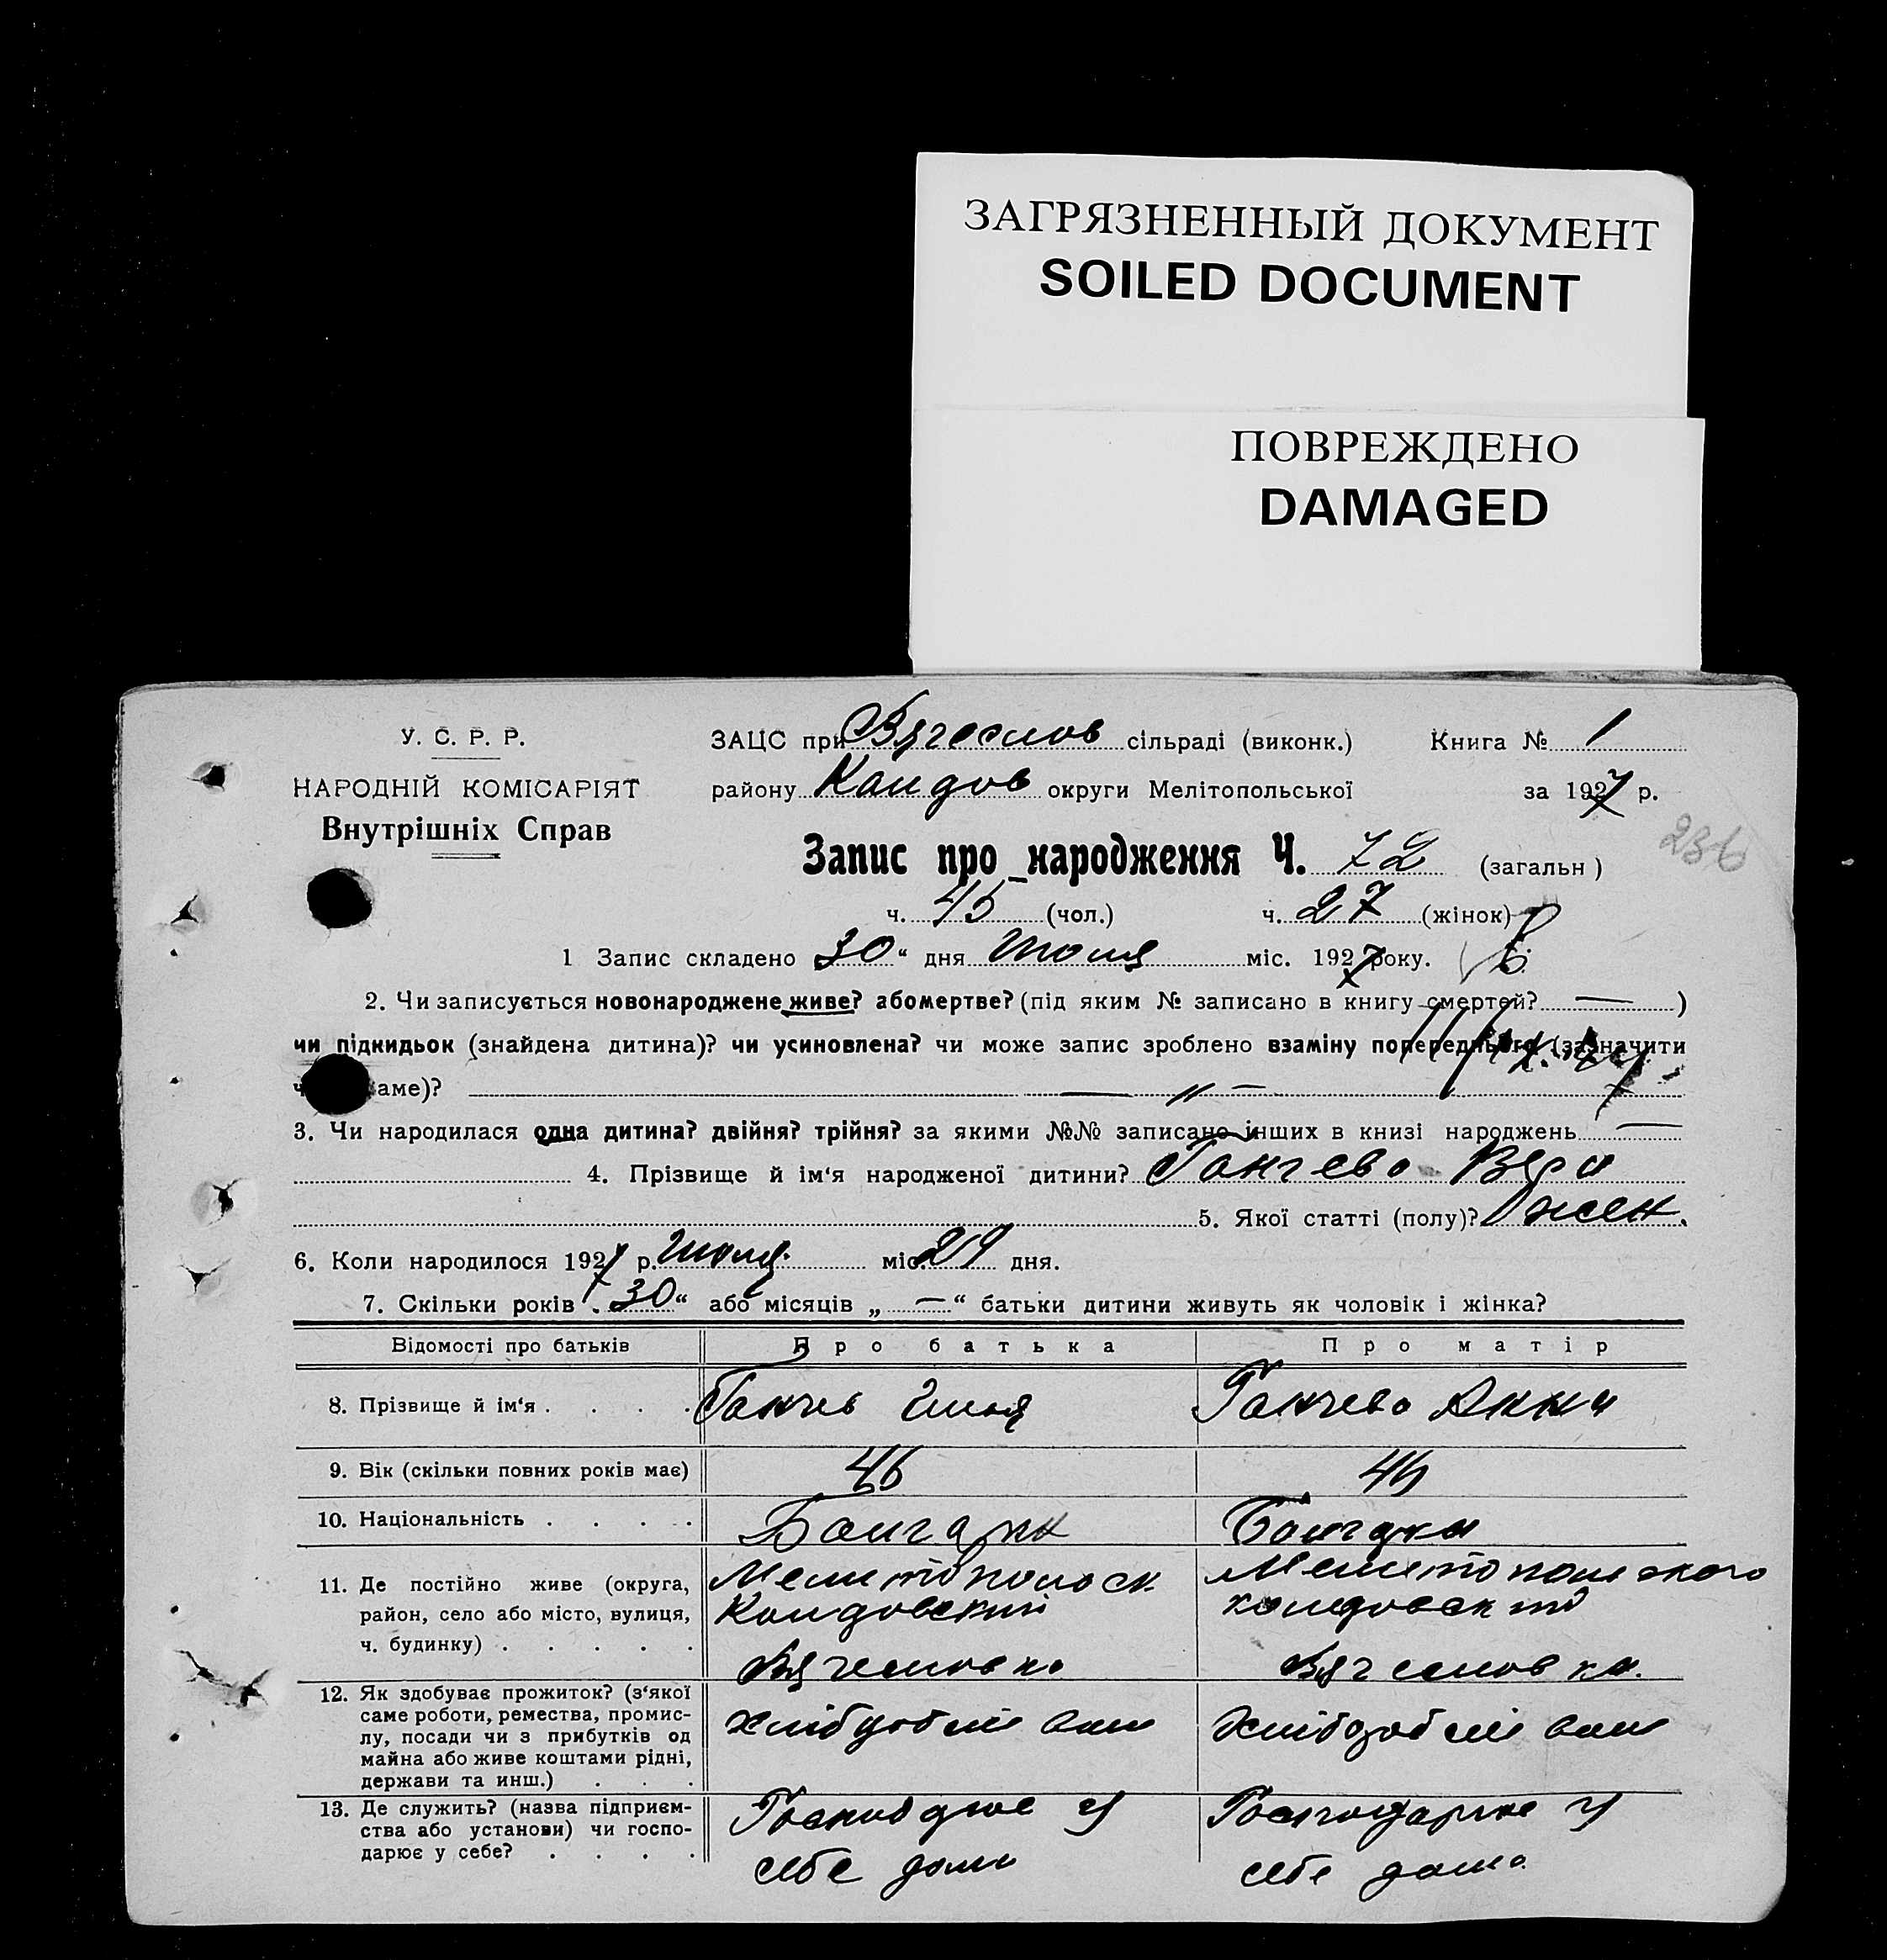 ЗАГРЯЗНЕННЫЙ ДОКУМЕНТ
SOILED DOCUMENT
ПОВРЕЖДЕНО
DAMAGED
У. С. Р. Р.
НАРОДНІЙ КОМІСАРІЯТ
Внутрішніх Справ
ЗАЦС при Вячеслов сільраді (виконк.) Книга № 1
району Колдов округи Мелітопольської за 1927 р.
236
Запис про народження Ч. 72 (загальн )
ч. 45 (чол.) ч. 27 (жінок)
1 Запис складено 30 " дня Июля міс. 1927 року.
2. Чи записується новонароджене живе? або мертве? (під яким № записано в книгу смертей? — )
чи підкидьок (знайдена дитина)? чи усиновлена? чи може запис зроблено взаміну попереднього (зазначити
аме)? — „ —
3. Чи народилася одна дитина? двійня? трійня? за якими №№ записано інших в книзі народжень —
4. Прізвище й ім'я народженої дитини? Ганчева Вера
5. Якої статті (полу)? жен.
6. Коли народилося 1927 р. Июля міс. 29 дня.
7. Скільки років „ 30 “ або місяців „ — “ батьки дитини живуть як чоловік і жінка?
Відомості про батьків Про батька Про матір
8. Прізвище й ім'я . . . . Ганчев Илья Ганчева Анна
9. Вік (скільки повних років має) 46 45
10. Національність . . . . Болгарин Болгарка
11. Де постійно живе (округа, район, село або місто, вулиця, ч. будинку) . . . . .
Мелитопольск Мелитопольского
Колдовский
Вячеславка Вячеславка
12. Як здобуває прожиток? (з'якої саме роботи, ремества, промислу, посади чи з прибутків од майна або живе коштами рідні, держави та инш.) . . .
13. Де служить? (назва підприємства або установи) чи господарює у себе? . . . .
Господарює у
себе дома себе дома